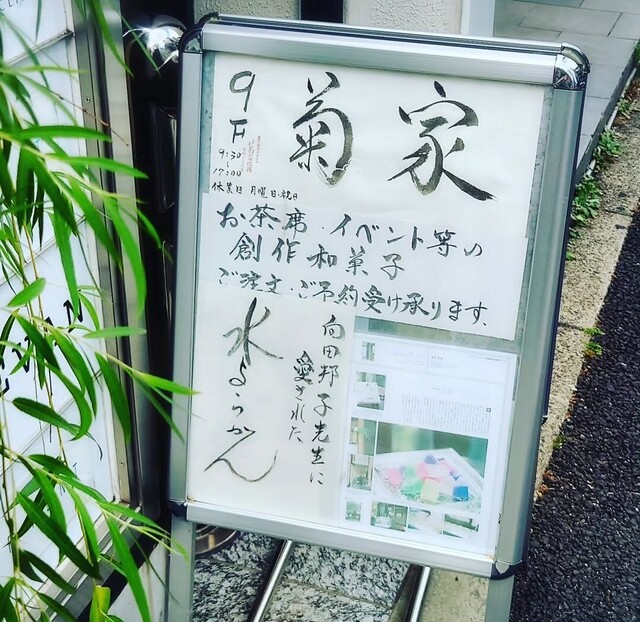 菊家
9F
9:30
~
17:00
休業日 月曜日・祝日
お茶席・イベント等の
創作和菓子
ご注文・ご予約受け承ります.
向田邦子先生に
愛された
水ようかん